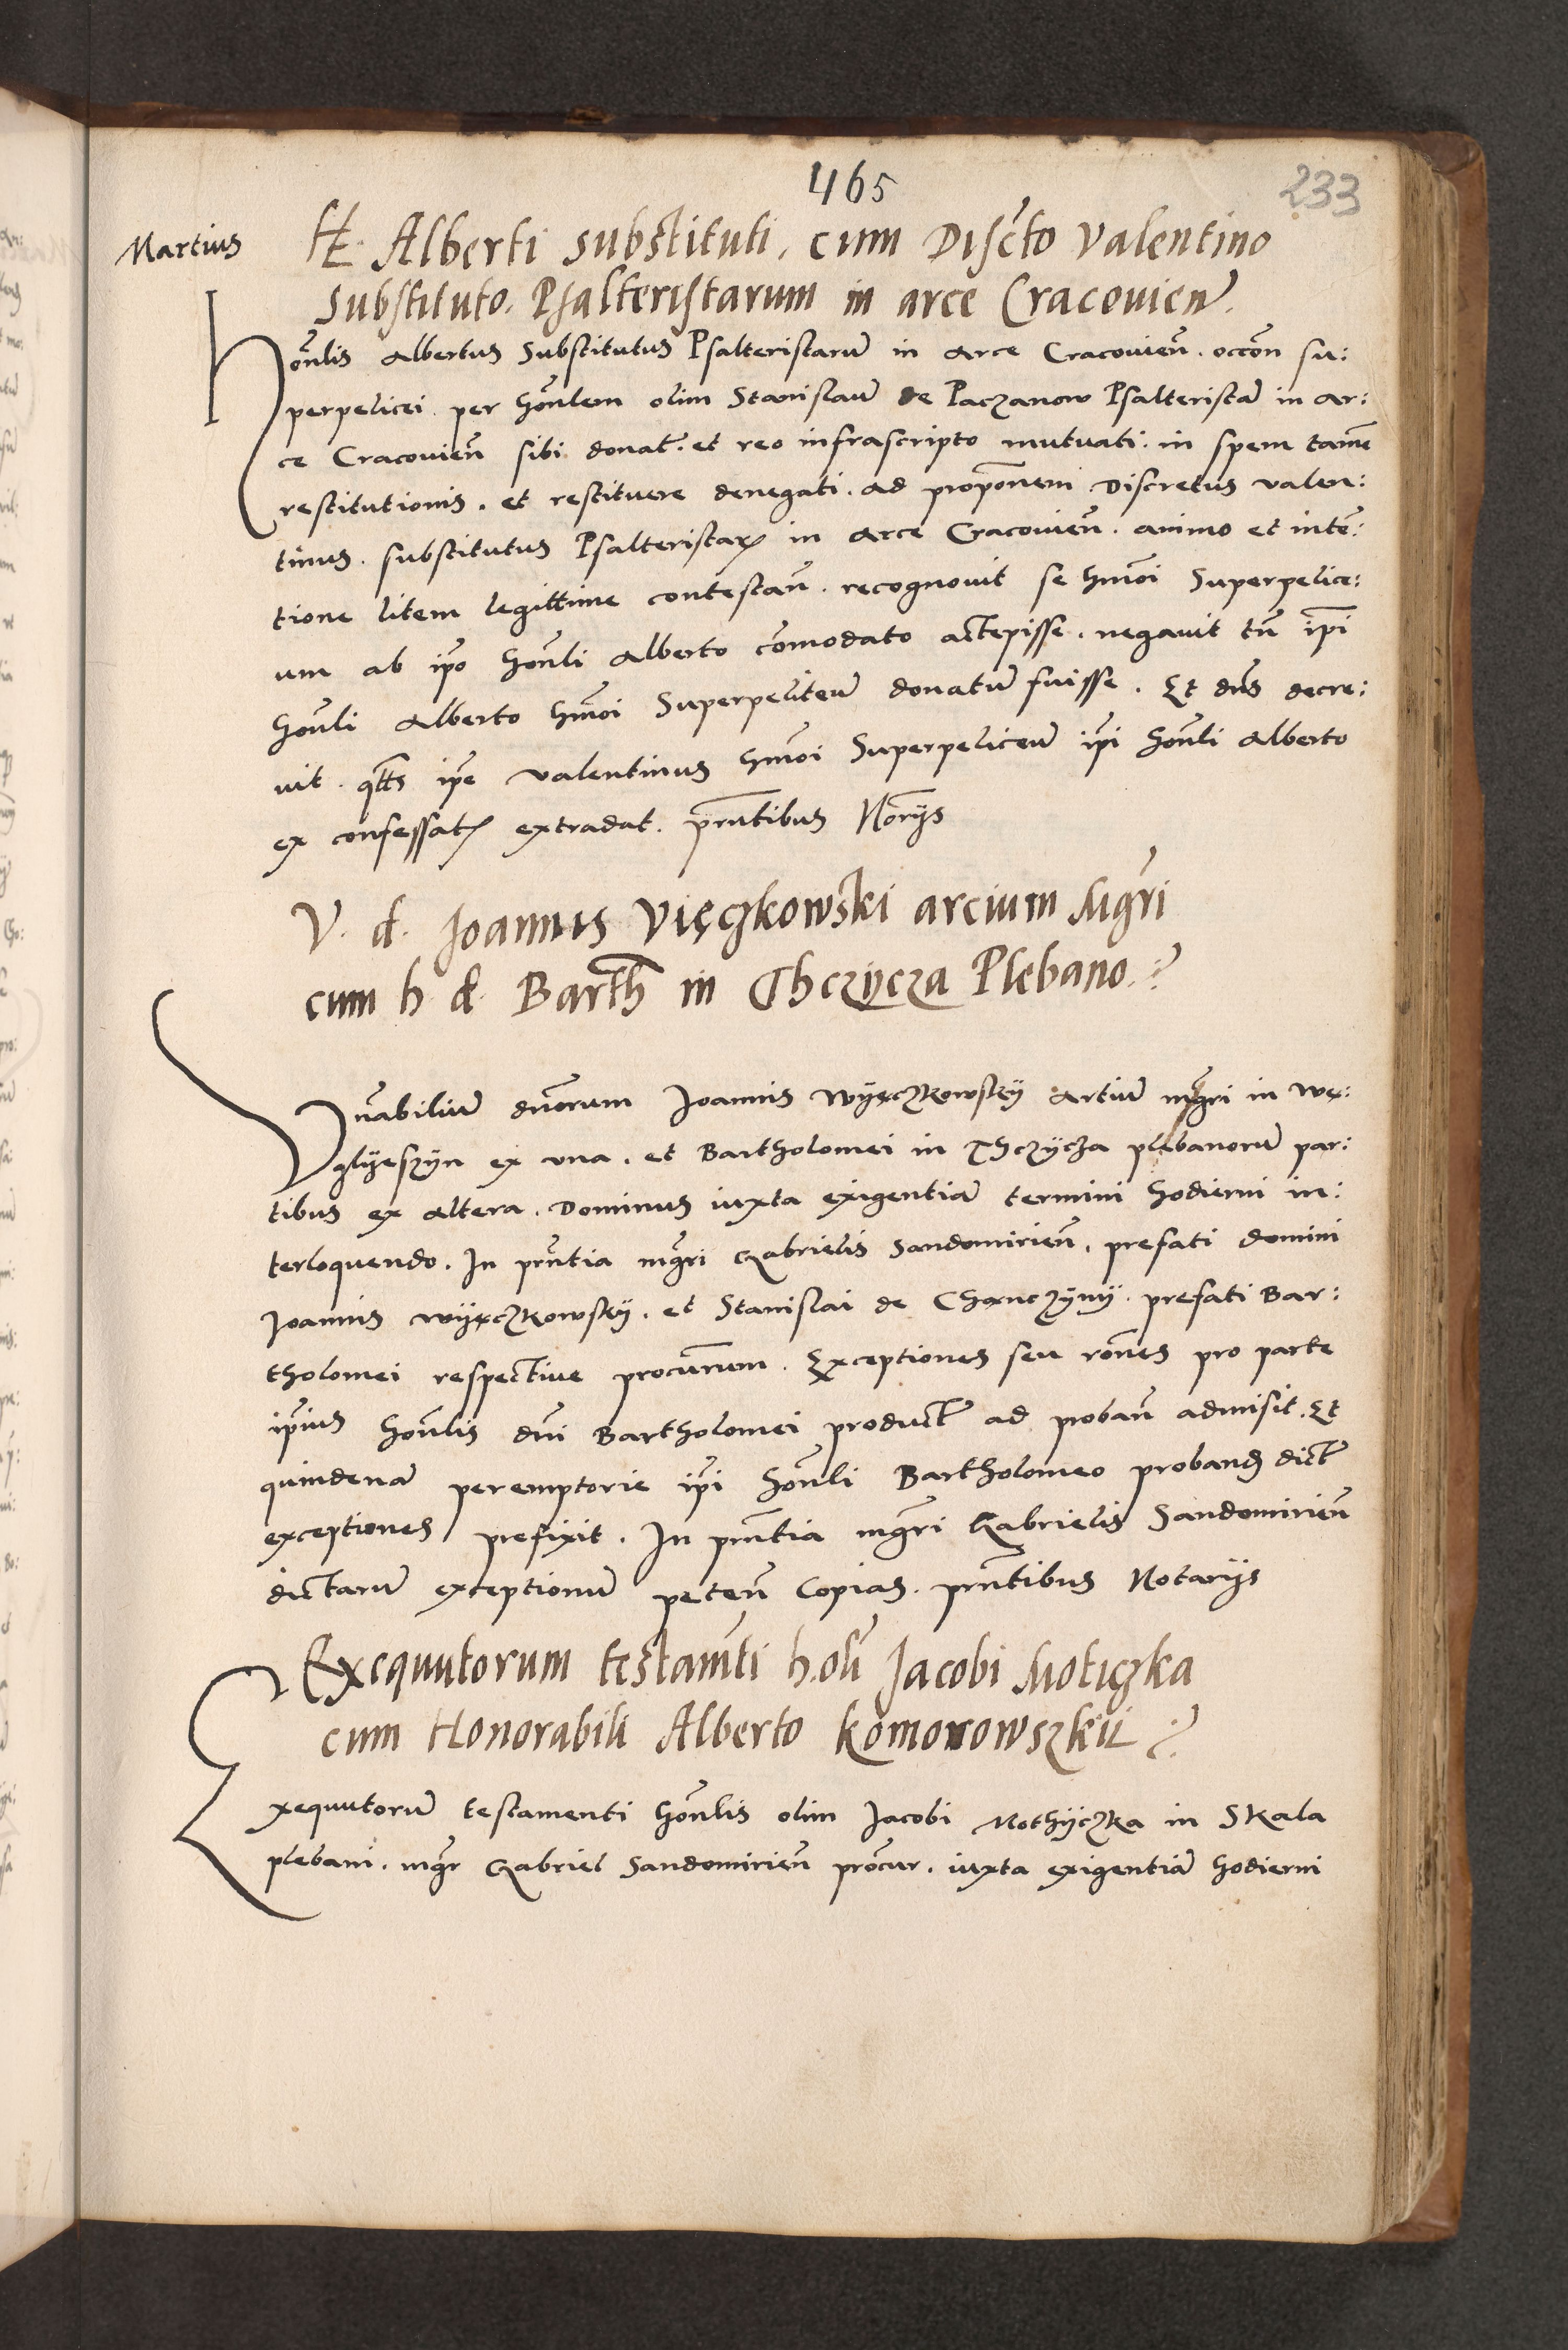 465
233
Martius
H. Alberti substituti, cum Discto Valentino
substituto. Psalteristarum in arce Cracovień.
Honlis Albertus Substitutus Psalteristarū in Arce Cracovień. occōn su:
perpelicei per Honlem olim Stanislaū de Paczanow Psalteristā in Ar:
ce Cracovień sibi donat. et reo infrascripto mutuati. in spem tamē
restitutionis. et restituere denegati. Ad propōnem Discretus valen:
tinus. substitutus Psalteristarꝝ in Arce Cracovień. animo et intē:
tione litem legittime contestań. recognovit se hmōi Superpelice:
um ab ipo Honli Alberto cōmodato accepisse. negavit tn̄ ipi
Honli Alberto hmōi Superpeliceū donatū fuisse. Et dns decre:
vit. qtts ipe valentinus hmōi Superpeliceū ipi Honli Alberto
ex confessatꝭ extradat. prntibus Norijs
V. d. Joannis Vięczkowski arcium Mgri
cum h d. Barth in Thczÿcza Plebano.
Vnabiliū dnorum Joannis Wÿęczkowskÿ Artiū mgri in Wę:
glÿeszÿn ex una. et Bartholomei in Thczÿcza plebanorū par:
tibus ex altera. Dominus iuxta exigentiā termini hodierni in:
terloquendo. In prntia mgri Gabrielis Sandomirień. prefati domini
Joannis Wÿęczkowskÿ. et Stanislai de Chanczÿnÿ. prefati Bar:
tholomei respective procurum. Exceptiones seu rones pro parte
ipius Honlis dni Bartholomei product ad probań admisit. Et
quindenā peremptorie ipi Honli Bartholomeo probanḍ dict
exceptiones prefixit. In prntia mgri Gabrielis Sandomirień
dictarū exceptionū peteń Copias. prntibus Notarijs
Exequutorum testamti h. oli Jacobi Moticzka
cum Honorabili Alberto Komorowszkii
Exequutorū testamenti Honlis olim Jacobi Mothÿczka in Skala
plebani. mgr Gabriel Sandomirień procur. iuxta exigentiā hodierni